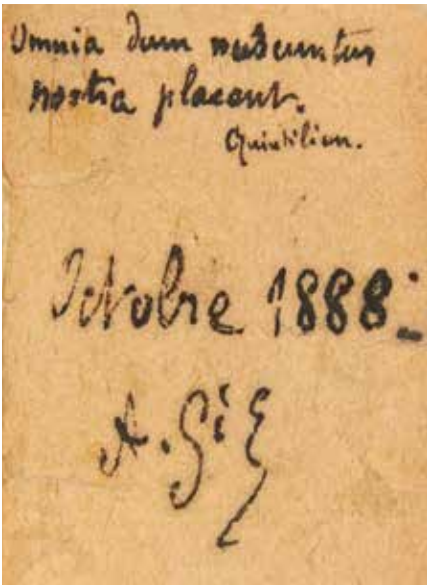 Omnia dum nascuntur
nostra placent.
Quintilien.
Octobre 1888.
A. Gi